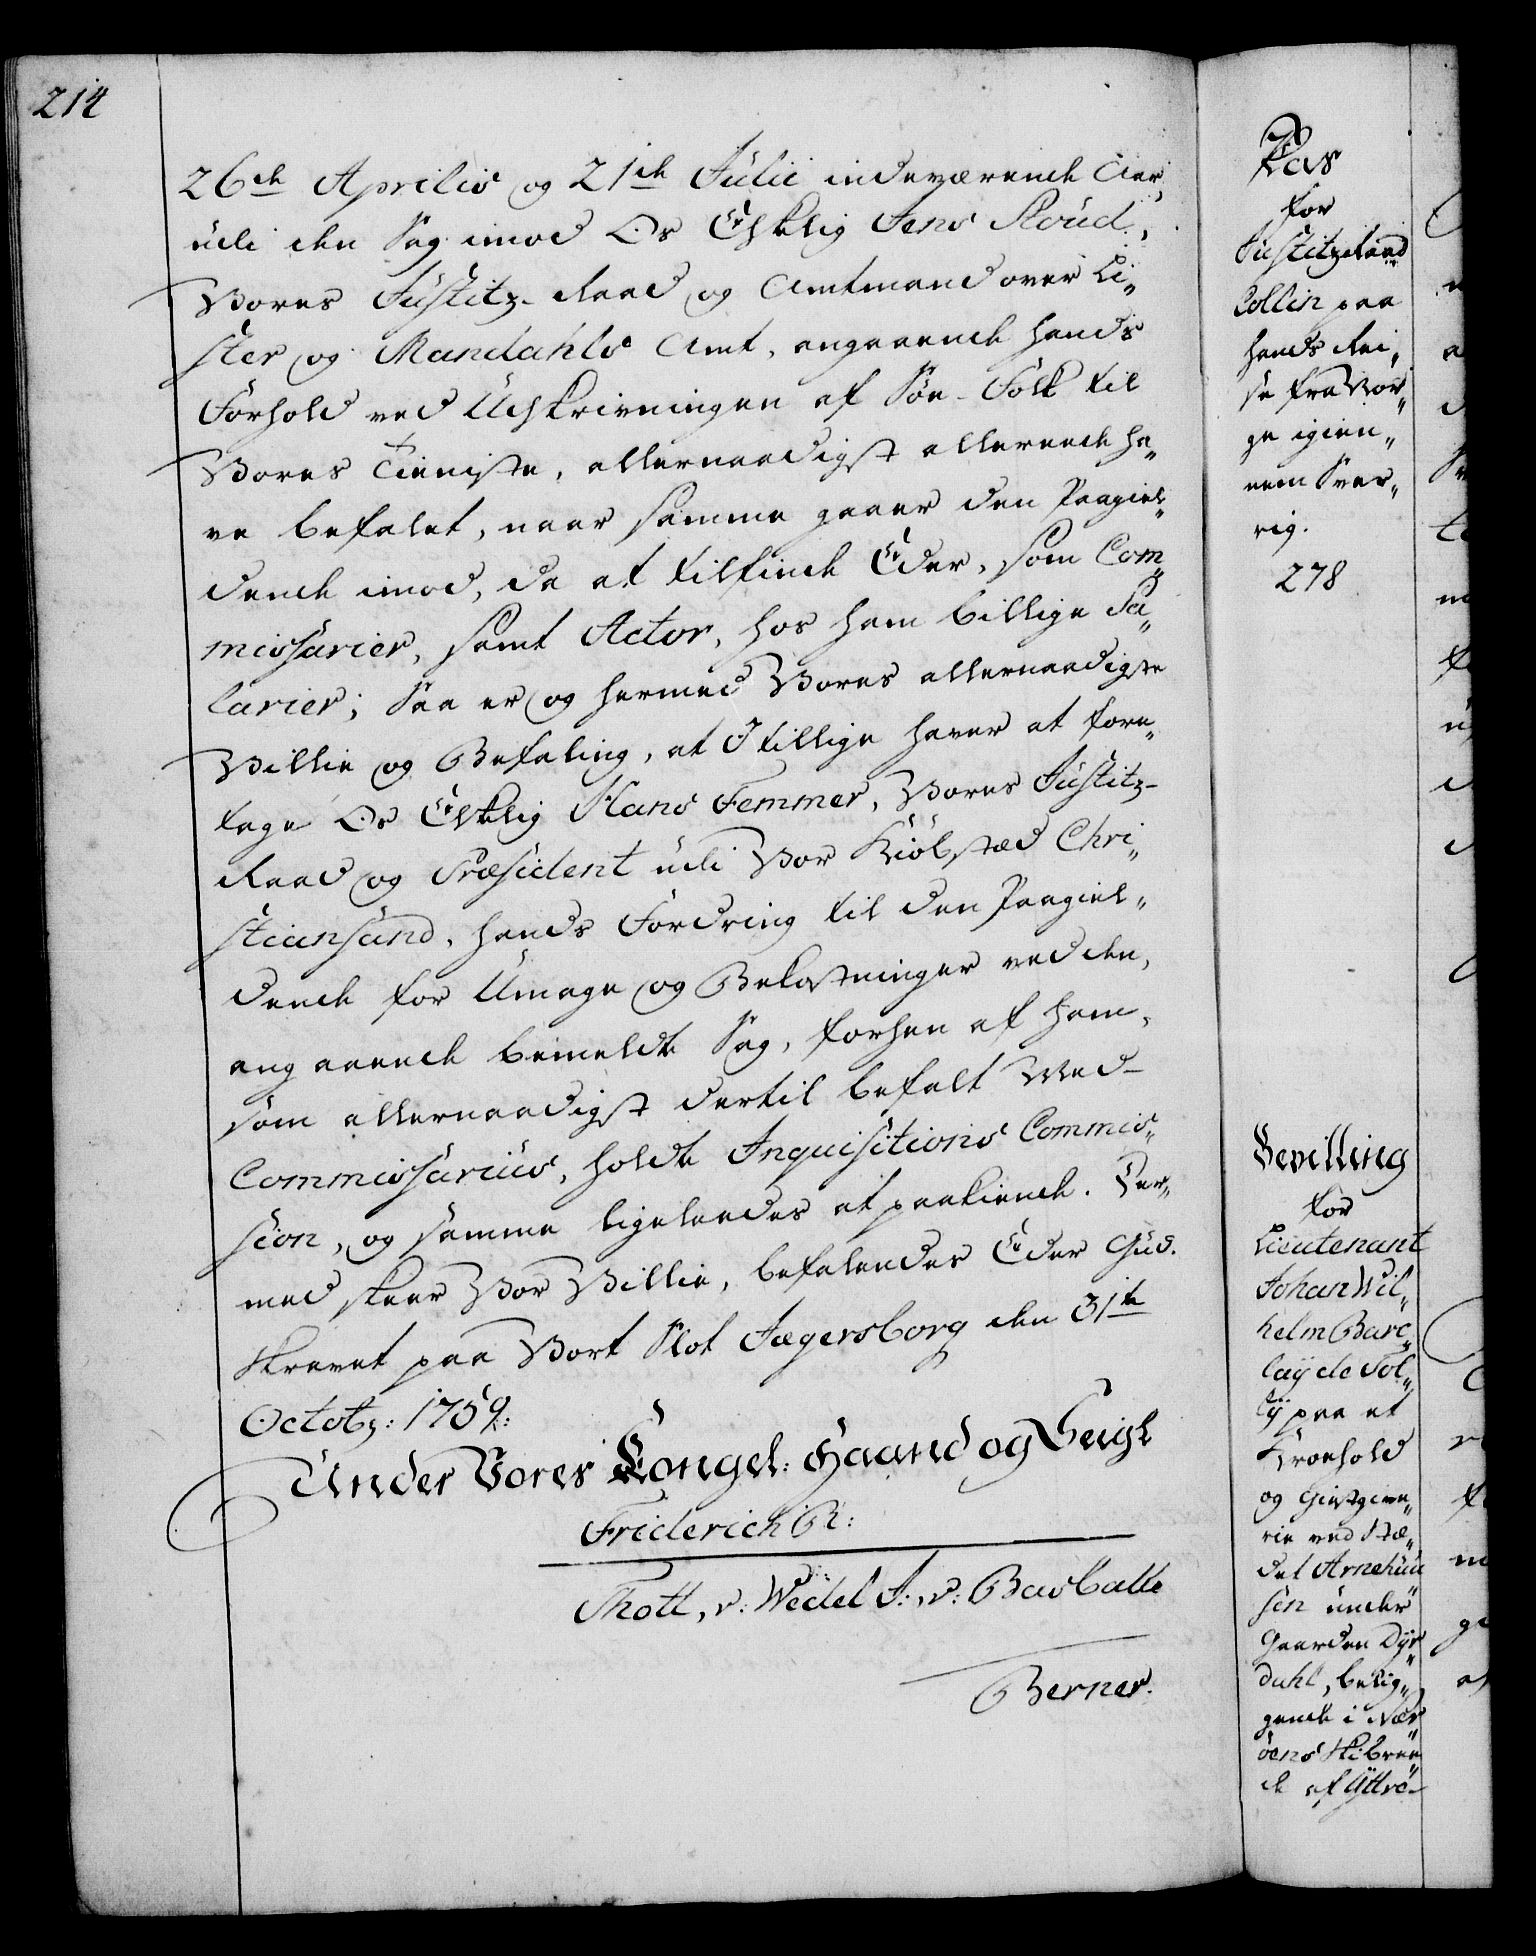 214
26de Aprilis og 21de Julii indeværende Aar,
udi den Sag imod Os Elskelig Jens Stoud,
Vores Justitz-Raad og Amtmand over Li„
ster og Mandahls Amt, angaaende hands
Forhold ved Udskrivningen af Søe-Folk til
Vores Tieniste, allernaadigst allereede ha„
ve befalet, naar samme gaaer den Paagiel„
dende imod, da at tilfinde Eder, som Com„
missarier, samt Actor, hos ham billige Sa„
larier; Saa er og hermed Vores allernaadigste
Villie og Befaling, at I tillige haver at fore„
tage Os Elskelig Hans Femmer, Vores Justitz-
Raad og Præsident udi Vor Kiöbstæd Chri„
stiansand, hands Fordring til den Paagiel„
dende for Umage og Bekostninger ved den,
angaaende bemeldte Sag, forhen af ham,
som allernaadigst dertil befalt Med-
Commissarius, holdte Inquisitions Commis„
sion, og samme ligeleedes at paakiende. Der„
med skeer Vor Villie, befalendes Eder Gud.
Skrevet paa Vort Slot Jægersborg den 31te
Octobr: 1759:
Under Vores Kongel: Haand og Seigl
Friderich R:
Thott, v: Wedel J:, v: Basballe
Berner.
Pas
for
Justitzraad
Collin paa
hands Rei„
se fra Nor„
ge igien„
nem Sver„
rig.
278
Bevilling
for
Lieutenant
Johan Wil„
helm Barc„
laÿ de Tol„
lÿ paa et
Kroehold
og Giestgive„
rie ved Stæ„
det Arnehuu
sen under
Gaarden Dÿr
dahl, belig„
gende i Nær
öens Skibree
de af Ÿttre-